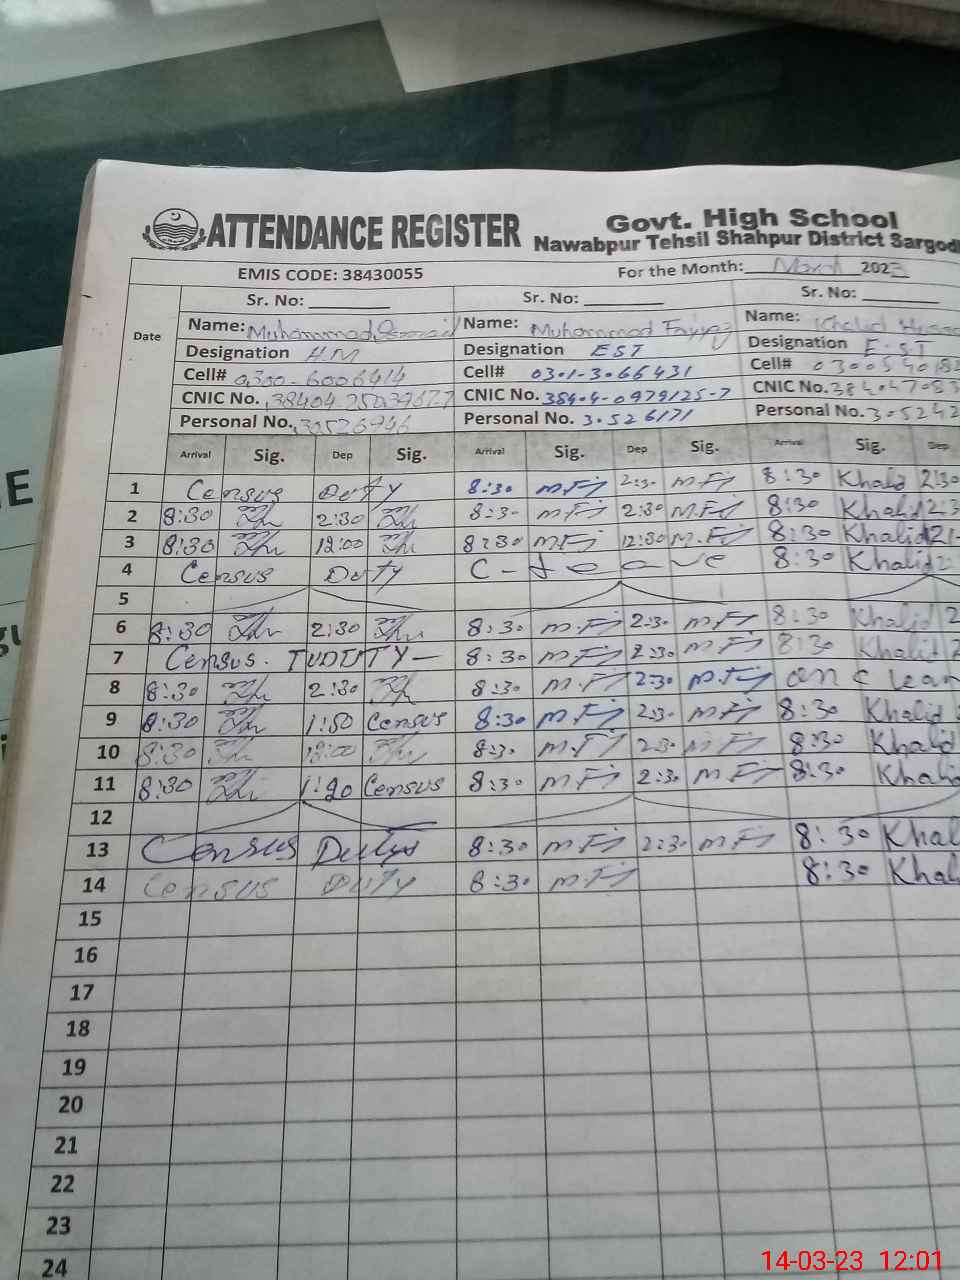 ATTENDANCE REGISTER Govt. High School
Nawabpur Tehsil Shahpur District Sargod
EMIS CODE: 38430055 For the Month: March 2023
Date Sr. No: Sr. No: Sr. No:
Name: Muhammad Name: Muhammad Fayyaz Name: Khalid
Designation HM Designation EST Designation E.S.T
Cell# 0300-6006414 Cell# 0301-3066431 Cell#
CNIC No. CNIC No. 38404-0979125-7 CNIC No.
Personal No. Personal No. 30526171 Personal No. 305242
Arrival Sig. Dep Sig. Arrival Sig. Dep Sig. Arrival Sig. Dep
1 Census Duty 8:30 2:30 8:30 Khalid 2:30
2 8:30 2:30 8:30 2:30 8:30 Khalid 2:3
3 8:30 12:00 8:30 12:30 8:30 Khalid
4 Census Duty C-leave 8:30 Khalid
5
6 8:30 2:30 8:30 2:30 8:30 Khalid 2
7 Census. DUTY 8:30 2:30 8:30 Khalid 2
8 8:30 2:30 8:30 2:30 on C lea
9 8:30 1:50 Census 8:30 2:30 8:30 Khalid
10 8:30 8:30 2:30 8:30 Khalid
11 8:30 1:20 Census 8:30 2:30 8:30 Khalid
12
13 Census Duty 8:30 2:30 8:30 Khal
14 Census Duty 8:30 8:30 Khal
15
16
17
18
19
20
21
22
23
24
14-03-23 12:01